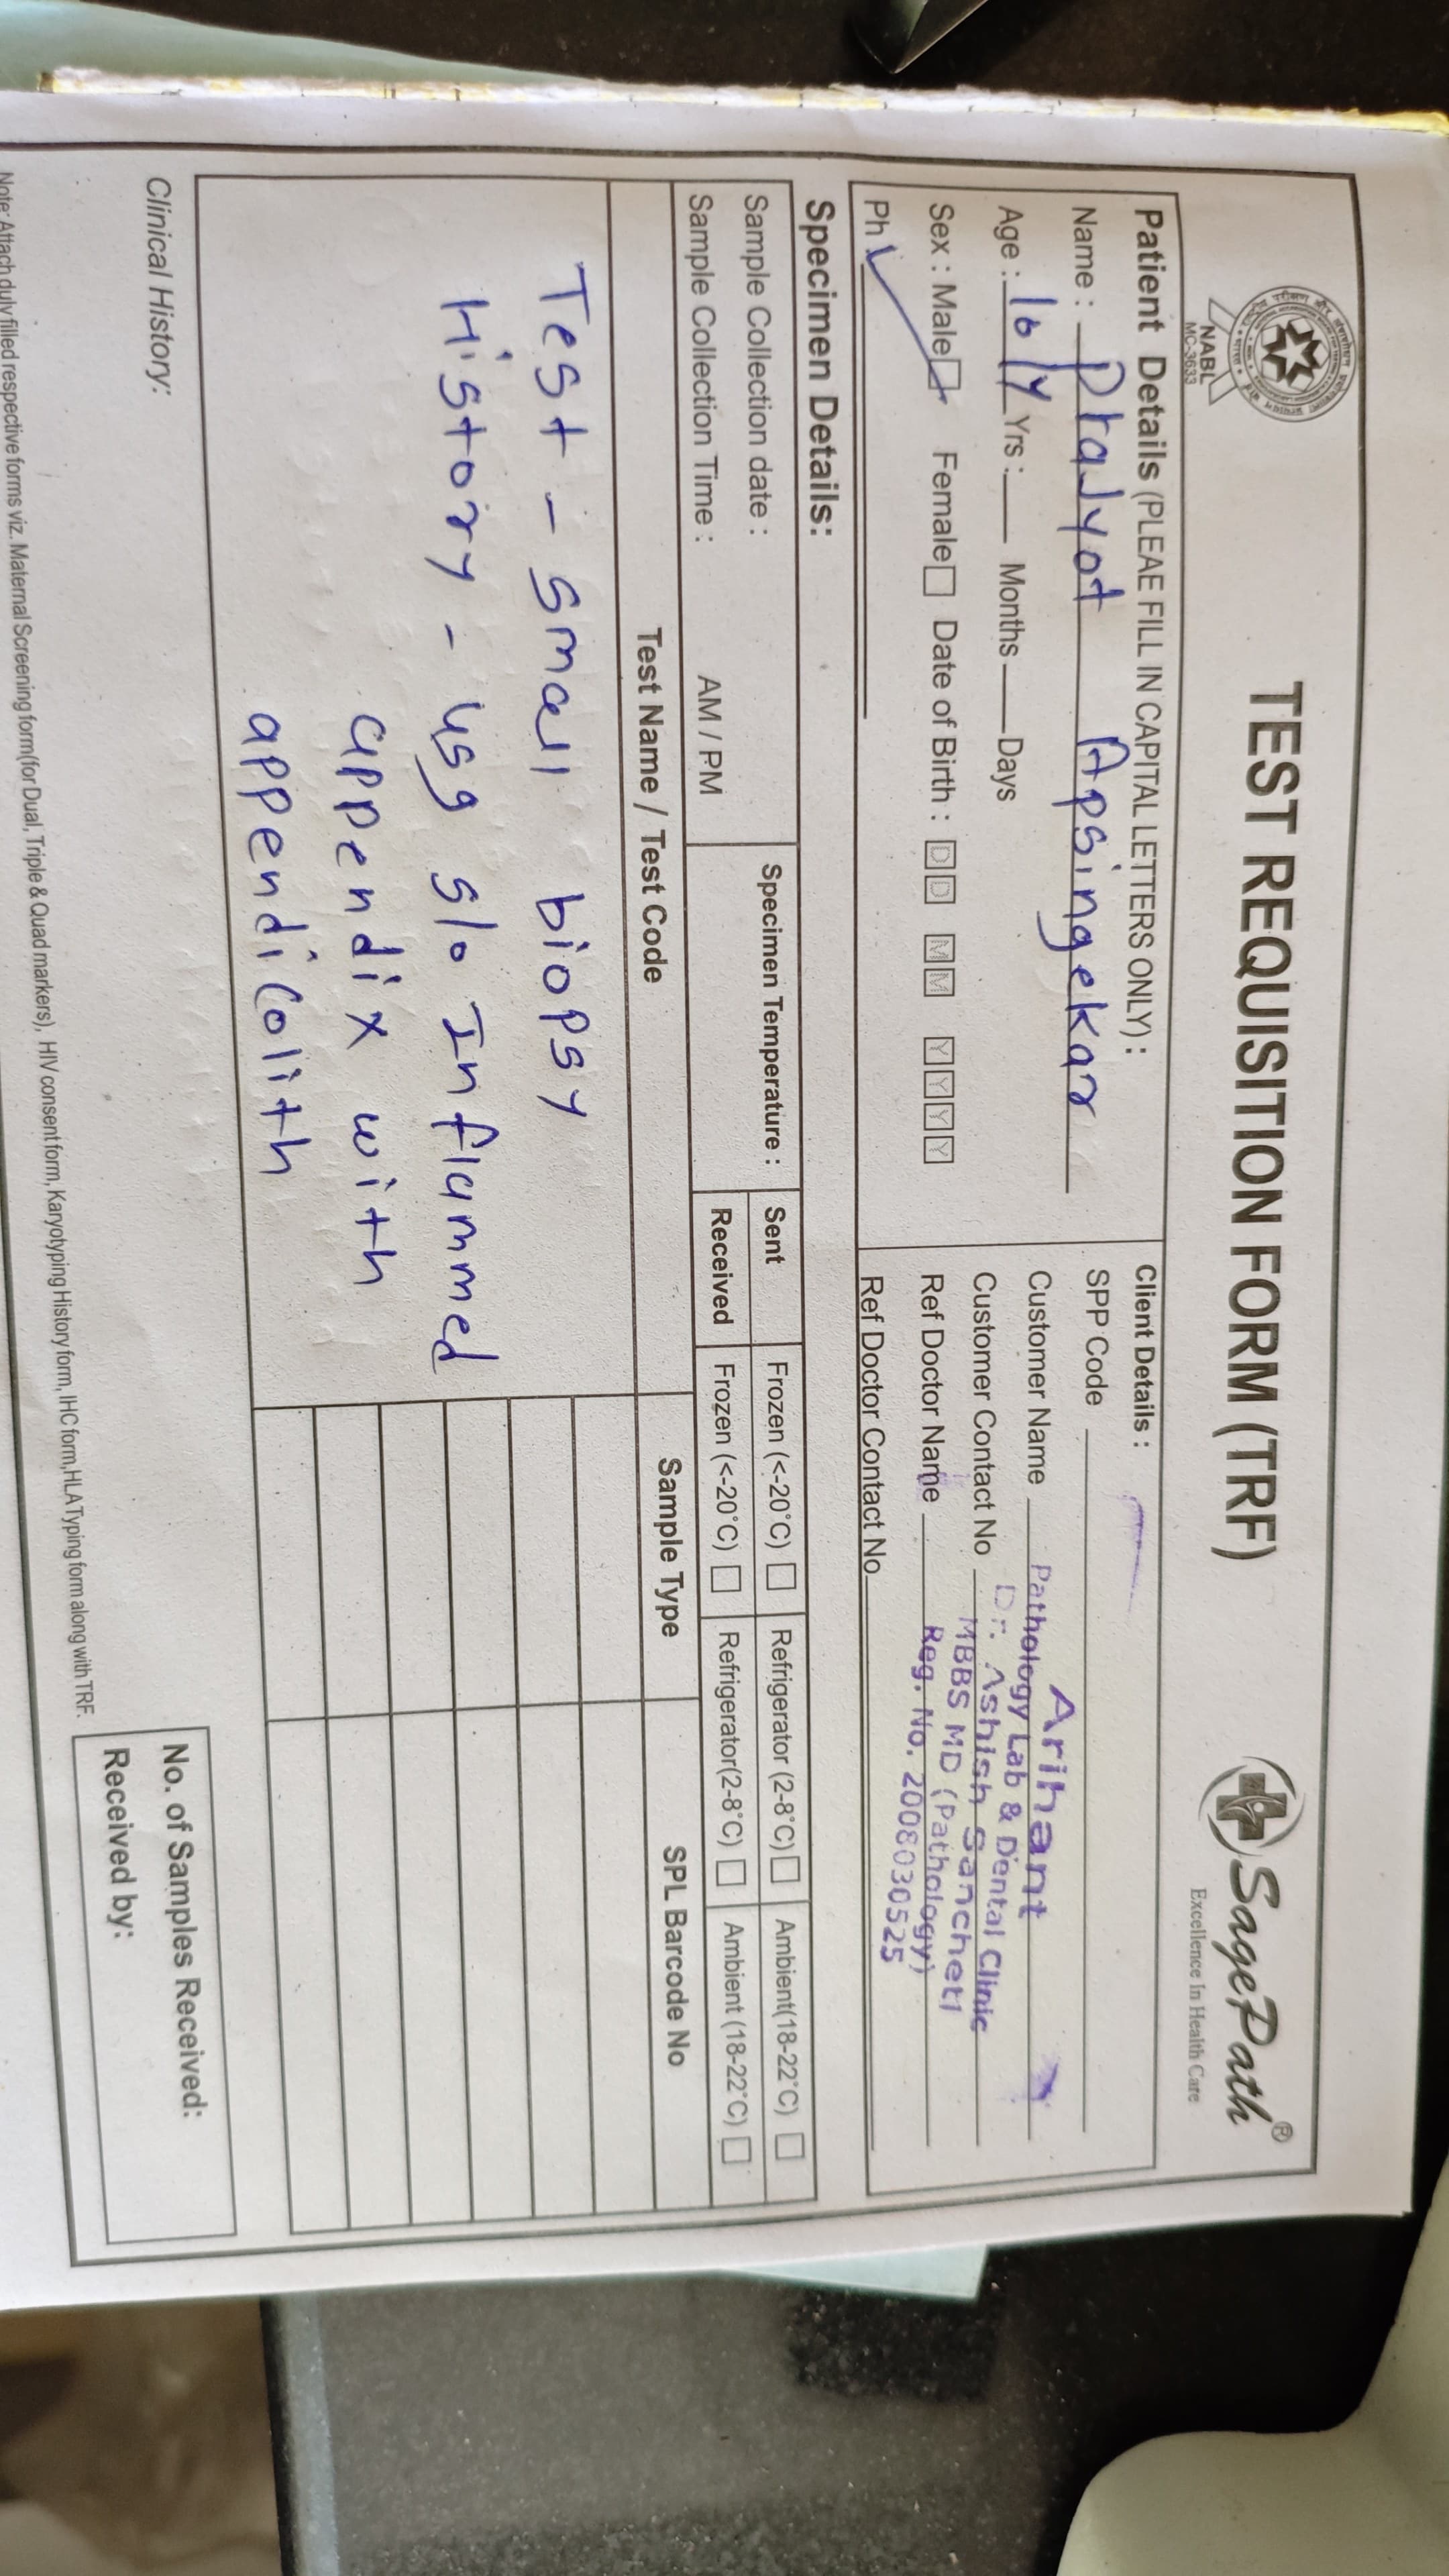 TEST REQUISITION FORM (TRF)
NABL
MC-3633
SagePath®
Excellence In Health Care
Patient Details (PLEAE FILL IN CAPITAL LETTERS ONLY) :
Name : Pralyot Apsingekar
Age : 16/Y Yrs : Months Days
Sex : Male Female Date of Birth : D D M M Y Y Y Y
Ph
Client Details :
SPP Code
Customer Name
Customer Contact No
Ref Doctor Name
Ref Doctor Contact No
Arihant
Pathology Lab & Dental Clinic
Dr. Ashish Sancheti
MBBS MD (Pathology)
Reg. No. 2008030525
Specimen Details:
Sample Collection date :
Sample Collection Time : AM / PM
Specimen Temperature :
Sent Frozen (<-20°C) Refrigerator (2-8°C) Ambient(18-22°C)
Received Frozen (<-20°C) Refrigerator(2-8°C) Ambient (18-22°C)
Test Name / Test Code Sample Type SPL Barcode No
Test - Small biopsy
History - usg s/o Inflammed
appendix with
appendicolith
Clinical History:
No. of Samples Received:
Received by:
Note: Attach duly filled respective forms viz. Maternal Screening form(for Dual, Triple & Quad markers), HIV consent form, Karyotyping History form, IHC form,HLA Typing form along with TRF.